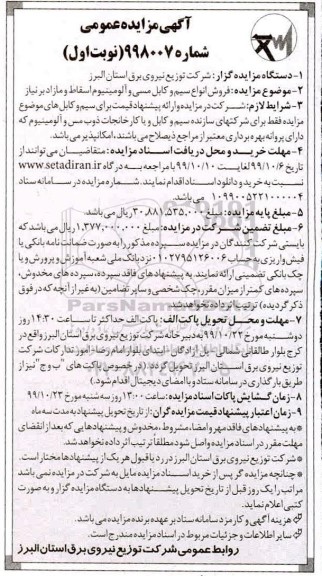 آگهی مزایده عمومی
شماره ۹۹۸۰۰۷ (نوبت اول)
۱- دستگاه مزایده گزار: شرکت توزیع نیروی برق استان البرز
۲- موضوع مزایده: فروش انواع سیم و کابل مسی و آلومینیوم اسقاط و مازاد بر نیاز
۳- شرایط لازم: شرکت در مزایده و ارائه پیشنهاد قیمت برای سیم و کابل های موضوع
مزایده فقط برای شرکتهای سازنده سیم و کابل و یا کارخانجات ذوب مس و آلومینیوم که
دارای پروانه بهره برداری معتبر از مراجع ذیصلاح می باشند، امکانپذیر می باشد.
۴- مهلت خرید و محل دریافت اسناد مزایده: متقاضیان می توانند از
تاریخ ۹۹/۱۰/۶ لغایت ۹۹/۱۰/۱۰ با مراجعه به درگاه www.setadiran.ir
نسبت به خرید و دانلود اسناد اقدام نمایند. شماره مزایده در سامانه ستاد
۱۰۹۹۰۰۵۲۲۱۰۰۰۰۰۴ می باشد.
۵- مبلغ پایه مزایده: مبلغ ۳۰,۸۸۱,۵۳۵,۰۰۰ ریال می باشد.
۶- مبلغ تضمین شرکت در مزایده: مبلغ ۱,۳۷۷,۰۰۰,۰۰۰ ریال می باشد که
بایستی شرکت کنندگان در مزایده سپرده مذکور را به صورت ضمانت نامه بانکی یا
فیش واریزی به حساب ۰۱۰۲۷۹۵۱۲۶۰۰۶ نزد بانک ملی شعبه آموزش و پرورش و یا
چک بانکی تضمینی ارائه نمایند. به پیشنهادهای فاقد سپرده، سپرده های مخدوش،
سپرده های کمتر از میزان مقرر، چک شخصی و سایر تضامین (به غیر از آنچه که در فوق
ذکر گردیده) ترتیب اثر داده نخواهد شد.
۷- مهلت و محل تحویل پاکت الف: پاکت الف حداکثر تا ساعت ۱۴:۳۰ روز
دوشنبه مورخ ۹۹/۱۰/۲۲ به دبیرخانه شرکت توزیع نیروی برق استان البرز واقع در
کرج بلوار طالقانی شمالی - پل آزادگان - ابتدای بلوار امام رضا - امور تدارکات شرکت
توزیع نیروی برق استان البرز تحویل گردد. (در خصوص پاکت های "ب و ج" نیز از
طریق بارگذاری در سامانه ستاد و با امضای دیجیتال اقدام شود.)
۸- زمان گشایش پاکات اسناد مزایده: ساعت ۱۳:۰۰ روز سه شنبه مورخ ۹۹/۱۰/۲۳
۹- زمان اعتبار پیشنهاد قیمت مزایده گران: از تاریخ تحویل پیشنهاد به مدت سه ماه
* به پیشنهادهای فاقد مهر و امضاء، مشروط، مخدوش و پیشنهادهایی که بعد از انقضای
مهلت مقرر در اسناد مزایده واصل شود مطلقاً ترتیب اثر داده نخواهد شد.
* شرکت توزیع نیروی برق استان البرز در رد یا قبول هر یک از پیشنهادها مختار است.
* چنانچه مزایده گر پس از خرید اسناد مزایده مایل به شرکت در مزایده نمی باشد
مراتب را یک روز قبل از تاریخ تحویل پیشنهادها به دستگاه مزایده گزار و به صورت
کتبی اعلام نماید.
* هزینه آگهی و کارمزد سامانه ستاد بر عهده برنده مزایده می باشد.
* سایر اطلاعات و جزئیات مربوط در اسناد مزایده مندرج است.
روابط عمومی شرکت توزیع نیروی برق استان البرز